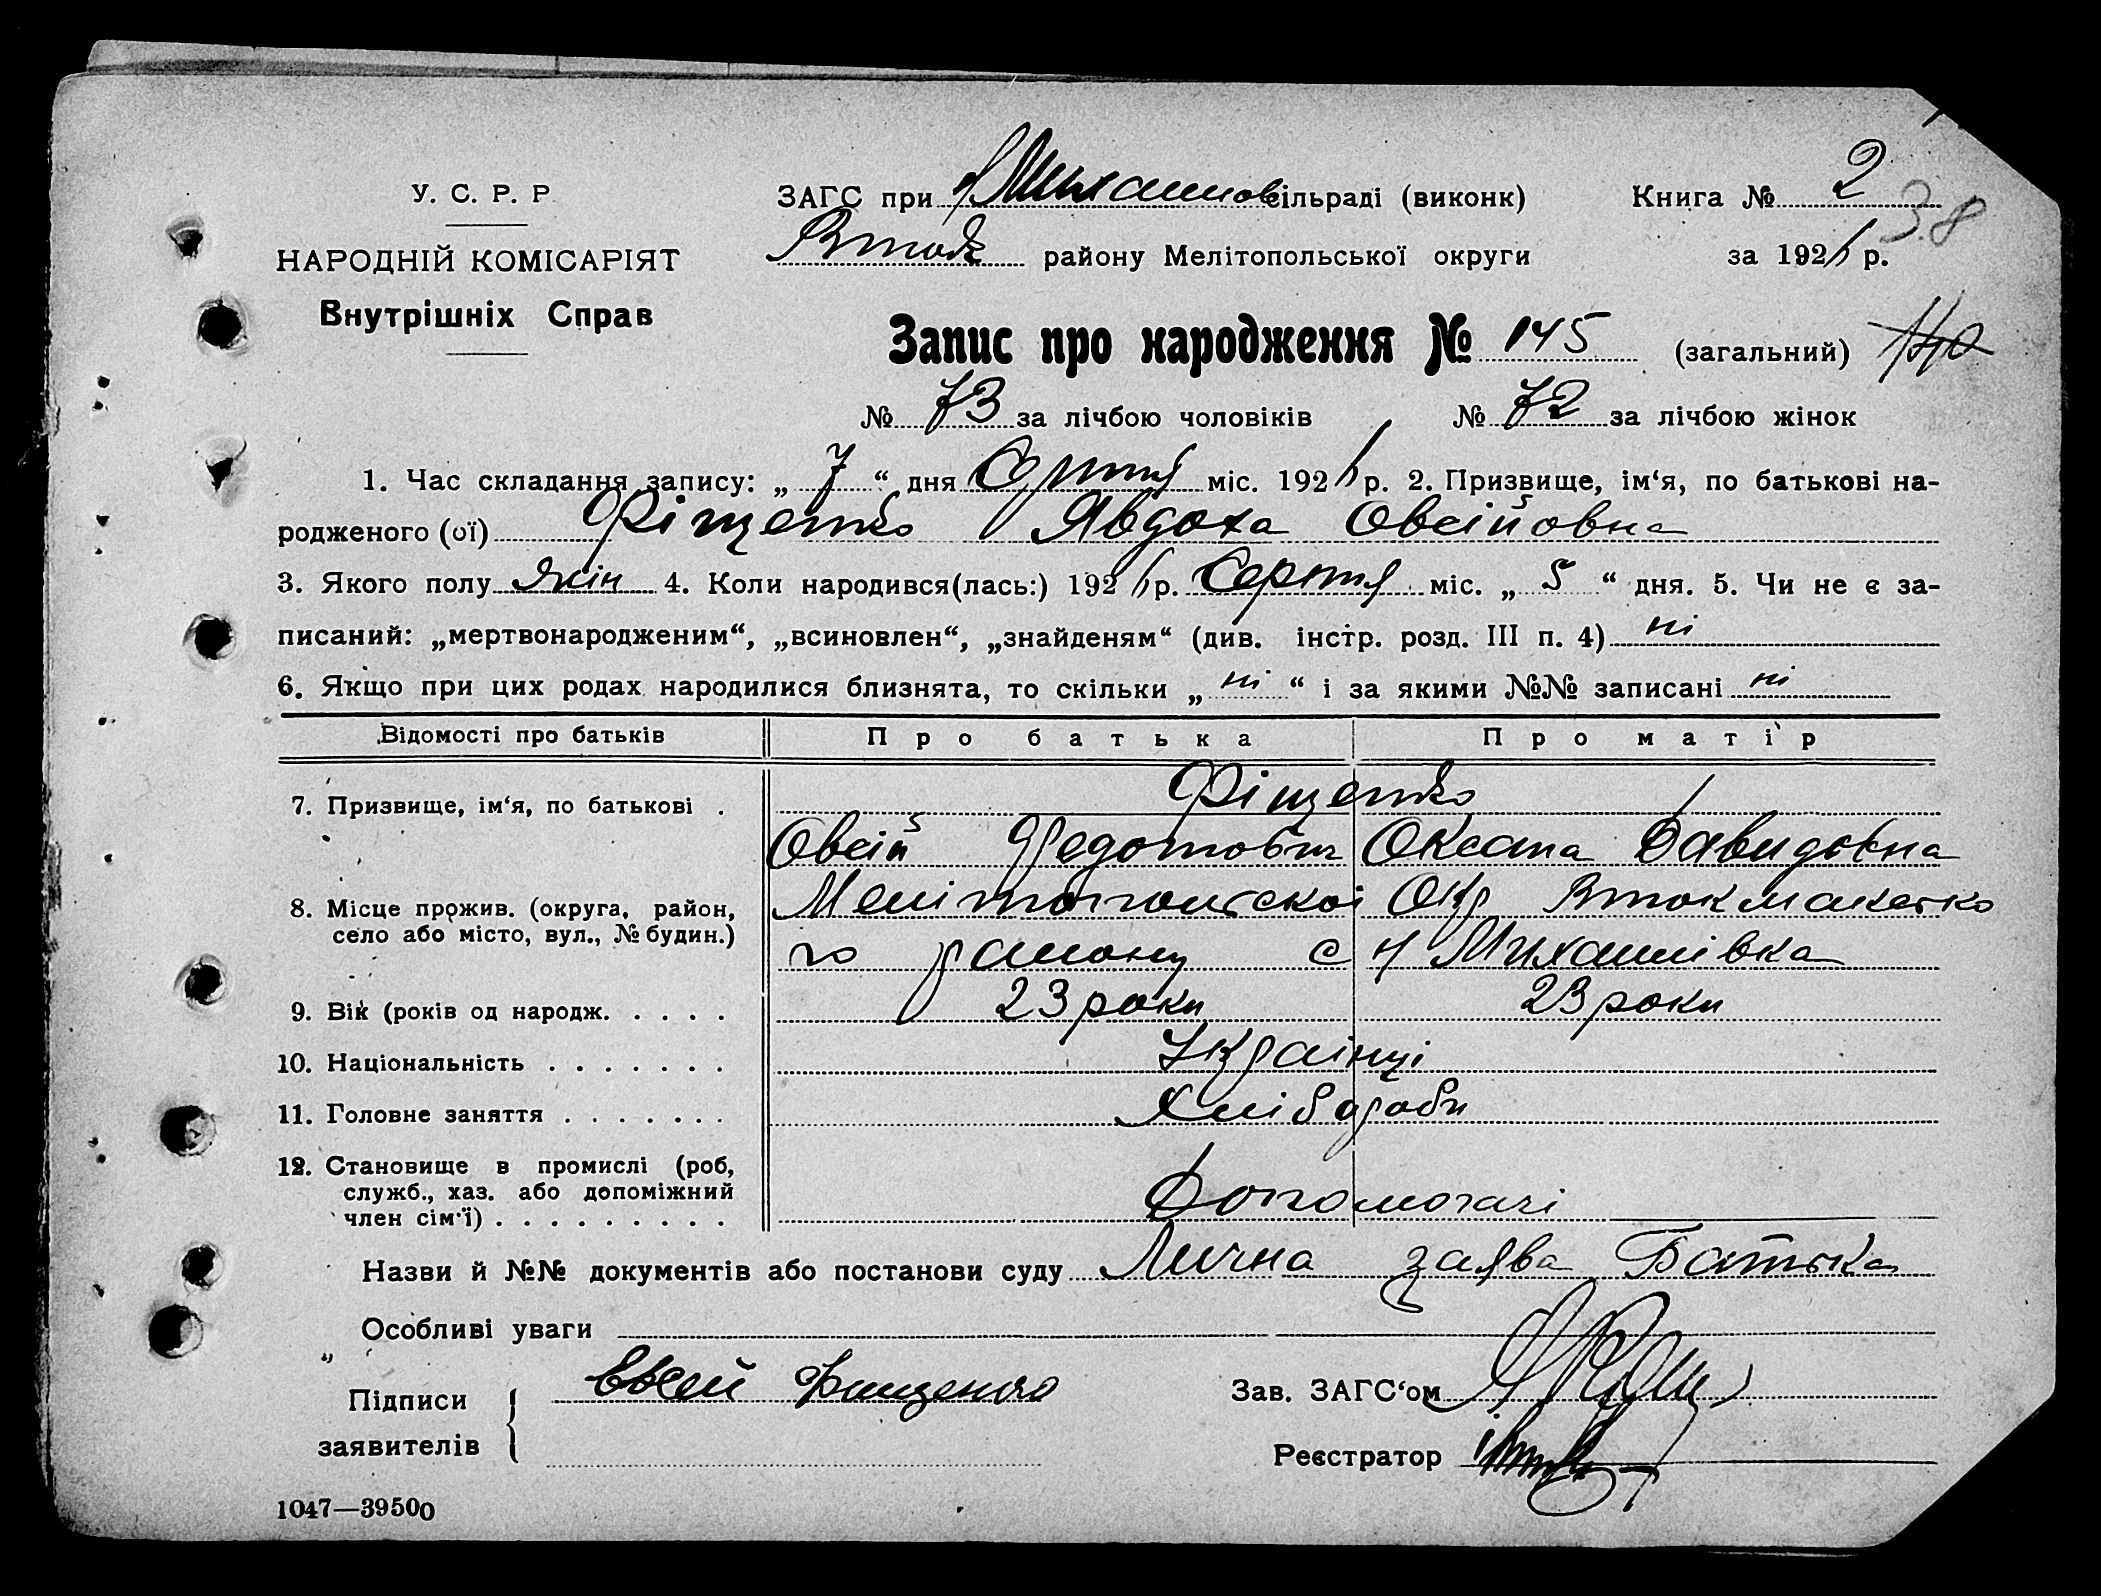 У. С. Р. Р
НАРОДНІЙ КОМІСАРІЯТ
Внутрішніх Справ
ЗАГС при Н Михайлов сільраді (виконк)
Втокк району Мелітопольської округи
Книга № 2
38
за 1926 р.
Запис про народження № 145 (загальний) 140
№ 73 за лічбою чоловіків № 72 за лічбою жінок
1. Час складання запису: „ 7 “ дня Серпня міс. 1926 р. 2. Призвище, ім‘я, по батькові на-
родженого (ої) Фіщенко Явдоха Овсійовна
3. Якого полу жін 4. Коли народився(лась:) 1926 р. Серпня міс. „ 5 “ дня. 5. Чи не є за-
писаний: „мертвонародженим“, „всиновлен“, „знайденям“ (див. інстр. розд. III п. 4) ні
6. Якщо при цих родах народилися близнята, то скільки „ ні “ і за якими №№ записані ні
Відомості про батьків Про батька Про матір
7. Призвище, ім‘я, по батькові . Фіщенко
Овсій Федотович Оксана Давидовна
8. Місце прожив. (округа, район, Мелітопольської Окр Втокмакско
село або місто, вул., № будин.) го району с Н Михайлівка
9. Вік (років од народж. . . . . 23 роки 23 роки
10. Національність . . . . . . . Українці
11. Головне заняття . . . . . . . Хлібороби
12. Становище в промислі (роб,
служб., хаз. або допоміжний
член сім‘ї) . . . . . . . . . Допомогачі
Назви й №№ документів або постанови суду Лична заява Батька
Особливі уваги
Підписи Евсей Фищенко Зав. ЗАГС‘ом
заявителів Реєстратор
1047—39500